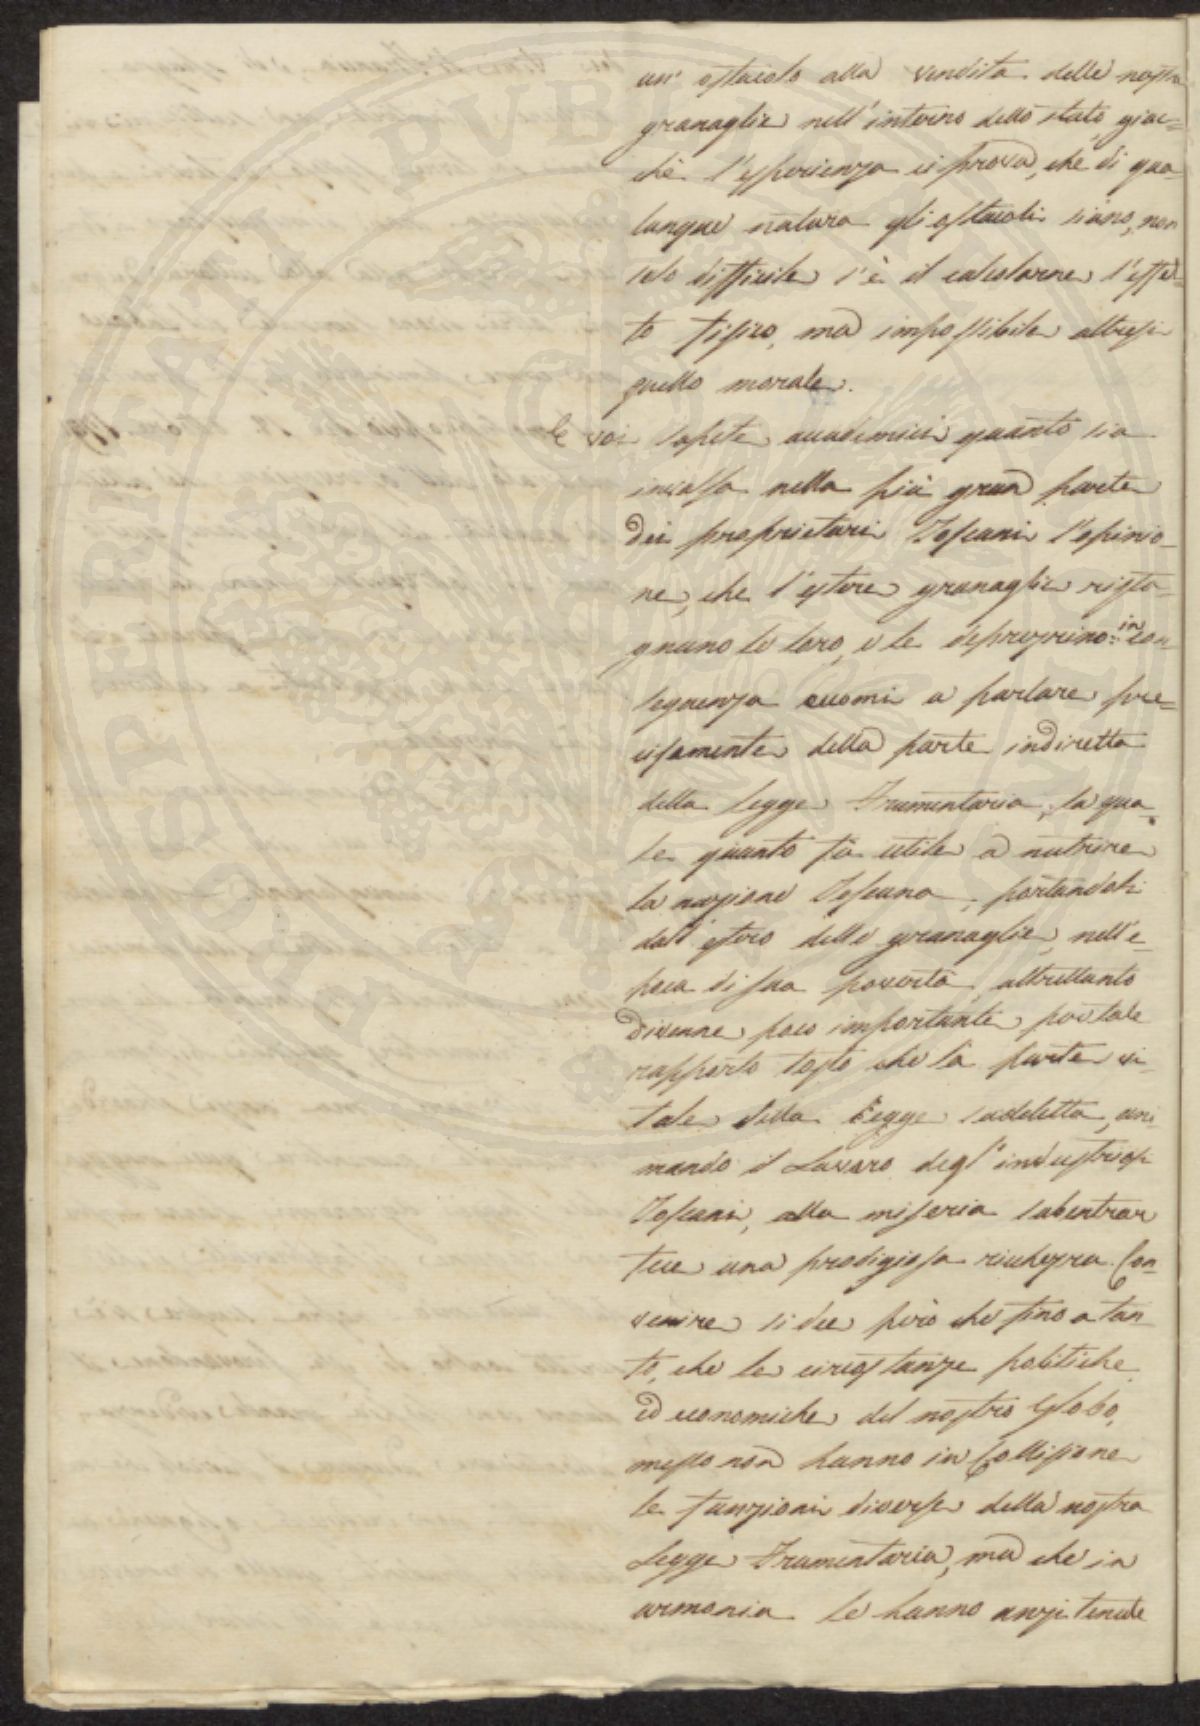 un' ostacolo alla vendita delle nostre
granaglie nell'interno dello stato, giac=
chè l'esperienza ci prova, che di qua-
lunque natura gli ostacoli siano, non
solo difficile s'è il calcolarne l'effet-
to fisico, ma impossibile altresi
quello morale.
E voi sapete accademici quanto sia
invalsa nella più gran parte
dei proprietari Toscani l'opinio-
ne, che l'estere granaglie rista-
gnano le loro, e le deprezzino: in con
seguenza eccomi a parlare pre=
cisamente della parte indiretta
della Legge Frumentaria, la qua-
le quanto fù utile a nutrire
la nazione Toscana, portandoli
dall'estero delle granaglie, nell'e-
poca di sua povertà, altrettanto
divenne poco importante per tale
rapporto tosto che la parte vi-
tale della Legge suddetta, ani
mando il Lavoro degl'industriosi
Toscani, alla miseria subentrar
fece una prodigiosa ricchezza. Con-
venire si dee però che fino a tan
to, che le circostanze politiche
ed economiche del nostro Globo,
messo non hanno in Collisione
le funzioni diverse della nostra
Legge Frumentaria, ma che in
armonia le hanno anzi tenute
PERITI PVBLIC PROSPERITATI